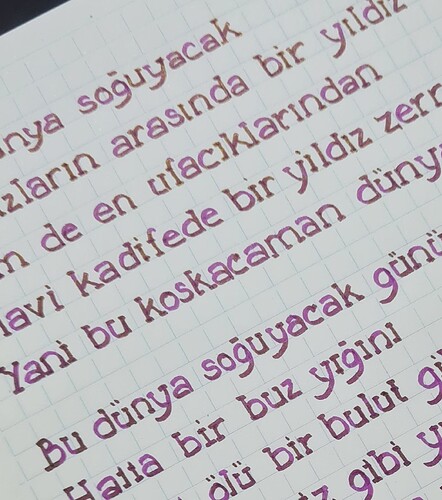 nya soğuyacak
zların arasında bir yıldız
m de en ufacıklarından
avi kadifede bir yıldız zerr
Yani bu koskacaman düny
Bu dünya soğuyacak günü
Hatta bir buz yığını
ölü bir bulut g
z gibi y